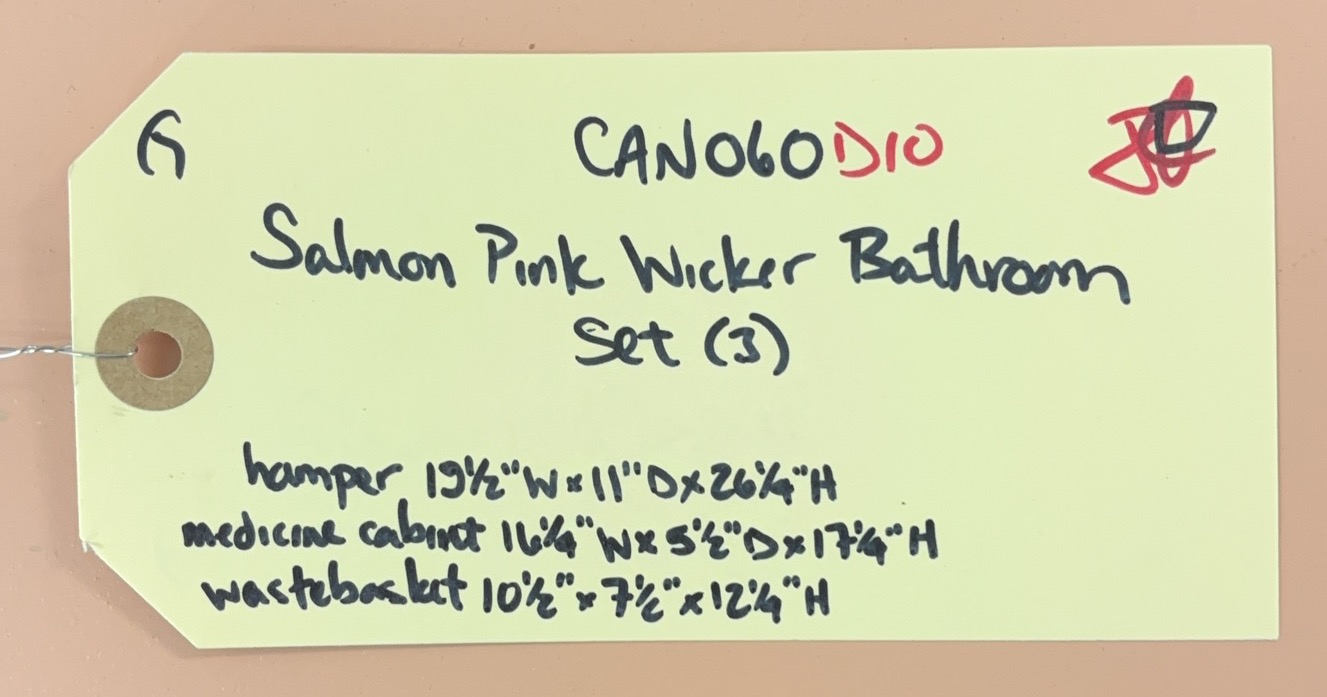 G
CAN060D10
Salmon Pink Wicker Bathroom
Set (3)
hamper 19½"W x 11"D x 26¼"H
medicine cabinet 16¼"W x 5½"D x 17¼"H
wastebasket 10½" x 7½" x 12¼"H